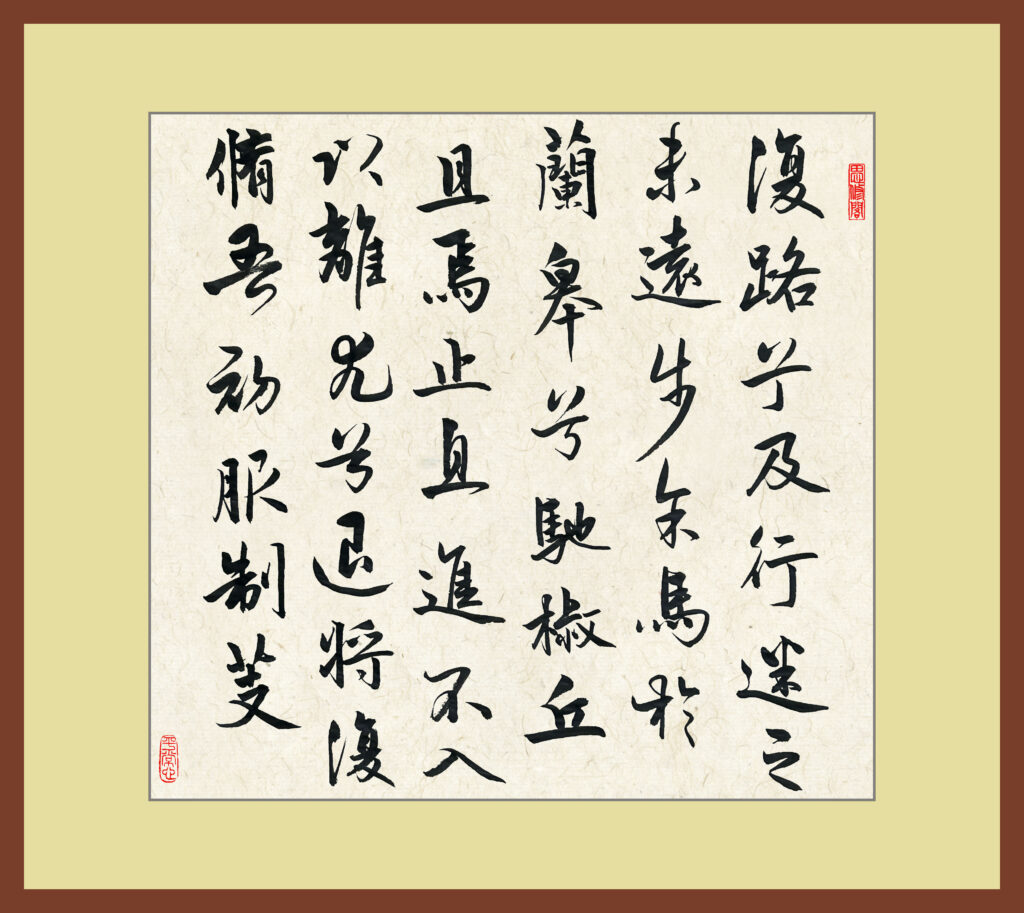 思修閣
復路兮及行迷之
未遠步余馬於
蘭皋兮馳椒丘
且焉止息進不入
以離尤兮退將復
脩吾初服制芰
平常心